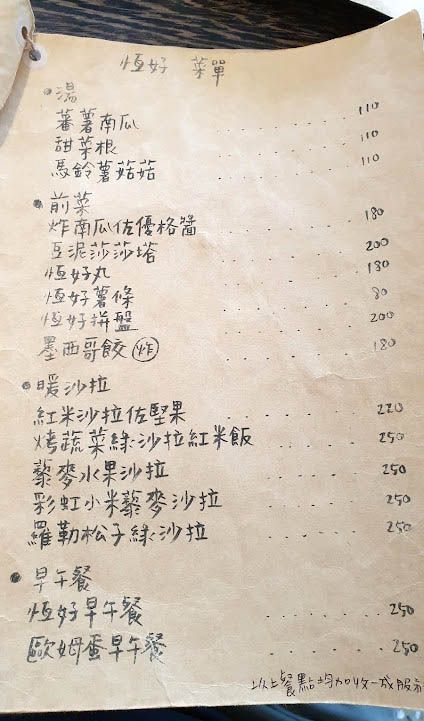 恆好 菜單
湯
蕃薯南瓜 110
甜菜根 110
馬鈴薯菇菇 110
前菜
炸南瓜佐優格醬 180
豆泥莎莎塔 200
恆好丸 180
恆好薯條 80
恆好拼盤 200
墨西哥餃 炸 180
暖沙拉
紅米沙拉佐堅果 220
烤蔬菜綠沙拉紅米飯 250
藜麥水果沙拉 250
彩虹小米藜麥沙拉 250
羅勒松子綠沙拉 250
早午餐
恆好早午餐 250
歐姆蛋早午餐 250
以上餐點均加收一成服